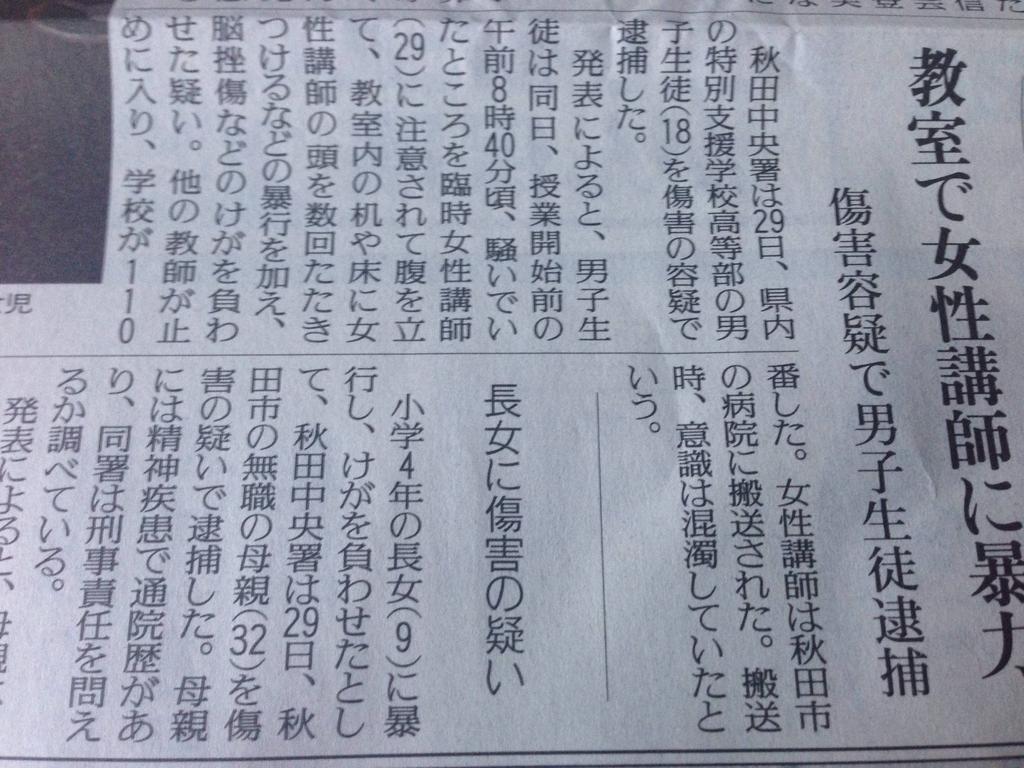 教室で女性講師に暴力
傷害容疑で男子生徒逮捕
秋田中央署は29日、県内
の特別支援学校高等部の男
子生徒(18)を傷害の容疑で
逮捕した。
発表によると、男子生
徒は同日、授業開始前の
午前8時40分頃、騒いでい
たところを臨時女性講師
(29)に注意されて腹を立
て、教室内の机や床に女
性講師の頭を数回たたき
つけるなどの暴行を加え、
脳挫傷などのけがを負わ
せた疑い。他の教師が止
めに入り、学校が110
番した。女性講師は秋田市
の病院に搬送された。搬送
時、意識は混濁していたと
いう。
長女に傷害の疑い
小学4年の長女(9)に暴
行し、けがを負わせたとし
て、秋田中央署は29日、秋
田市の無職の母親(32)を傷
害の疑いで逮捕した。母親
には精神疾患で通院歴があ
り、同署は刑事責任を問え
るか調べている。
発表によると、母親は
児